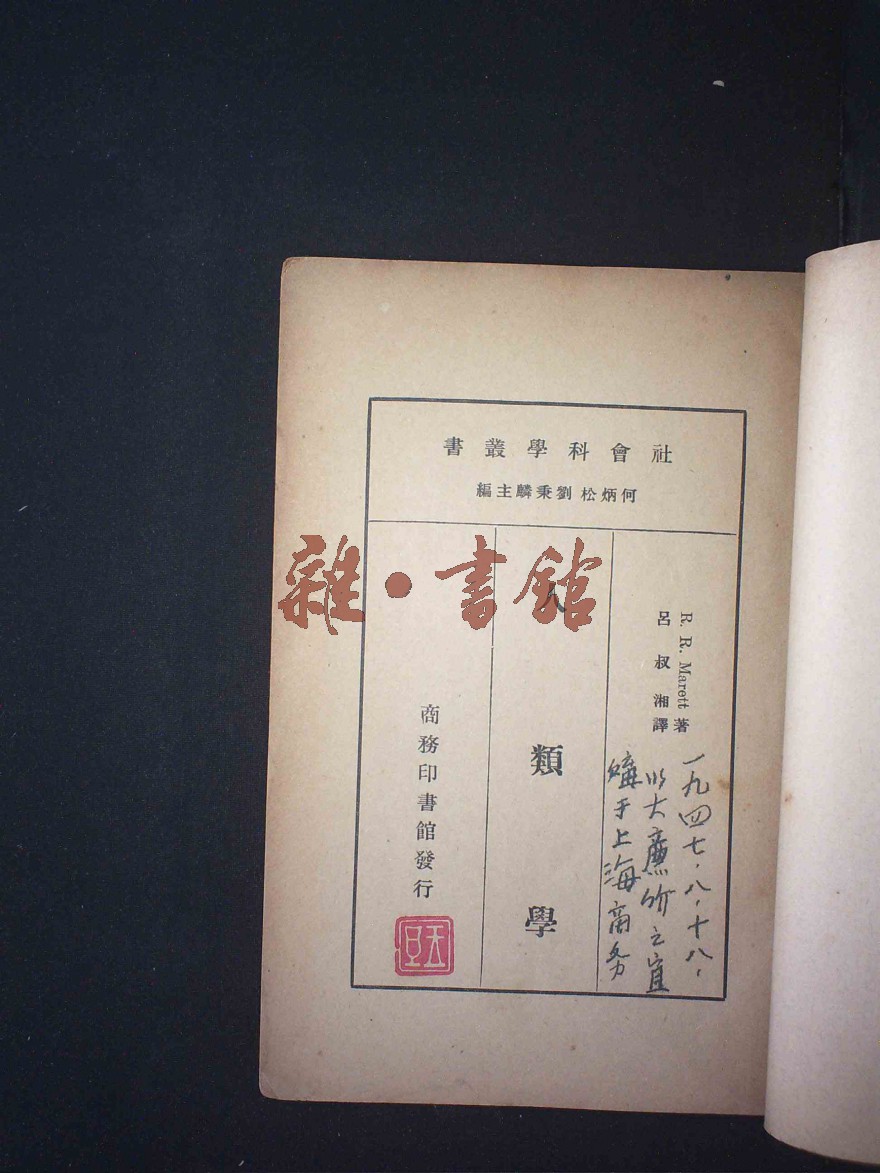 社會科學叢書
何炳松 劉秉麟主編
R. R. Marett 著
呂叔湘譯
一九四七·八·十八·
以大廉价之宜
購于上海商务
人類學
商務印書館發行
雜·書館